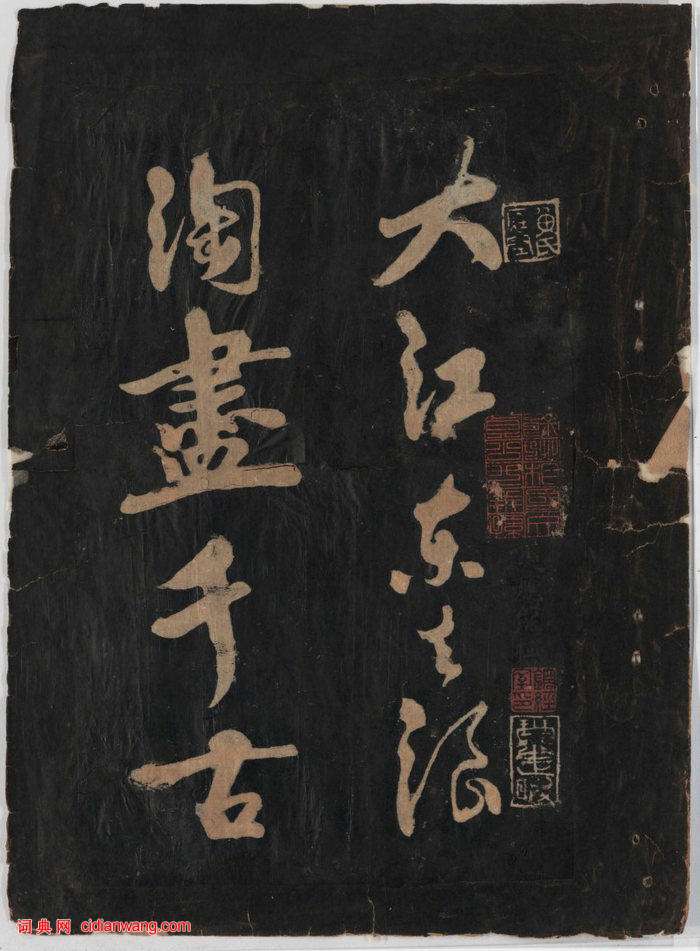 大江东去浪
淘盡千古
词典网 cidianwang.com